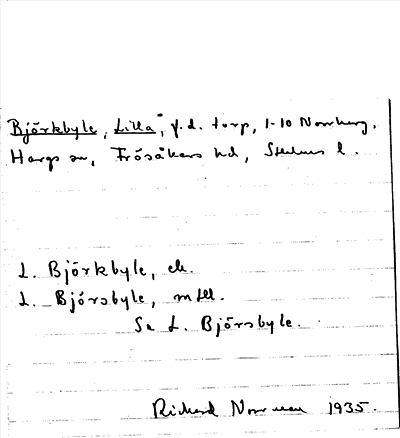 Björkbyle, Lilla, f.d. torp, 1-10 Norrberg.
Hargs sn, Frösåkers hd, Sthlms l.
L. Björkbyle, ek.
L. Björsbyle, mtl.
Se L. Björsbyle.
Richard Norrman 1935.